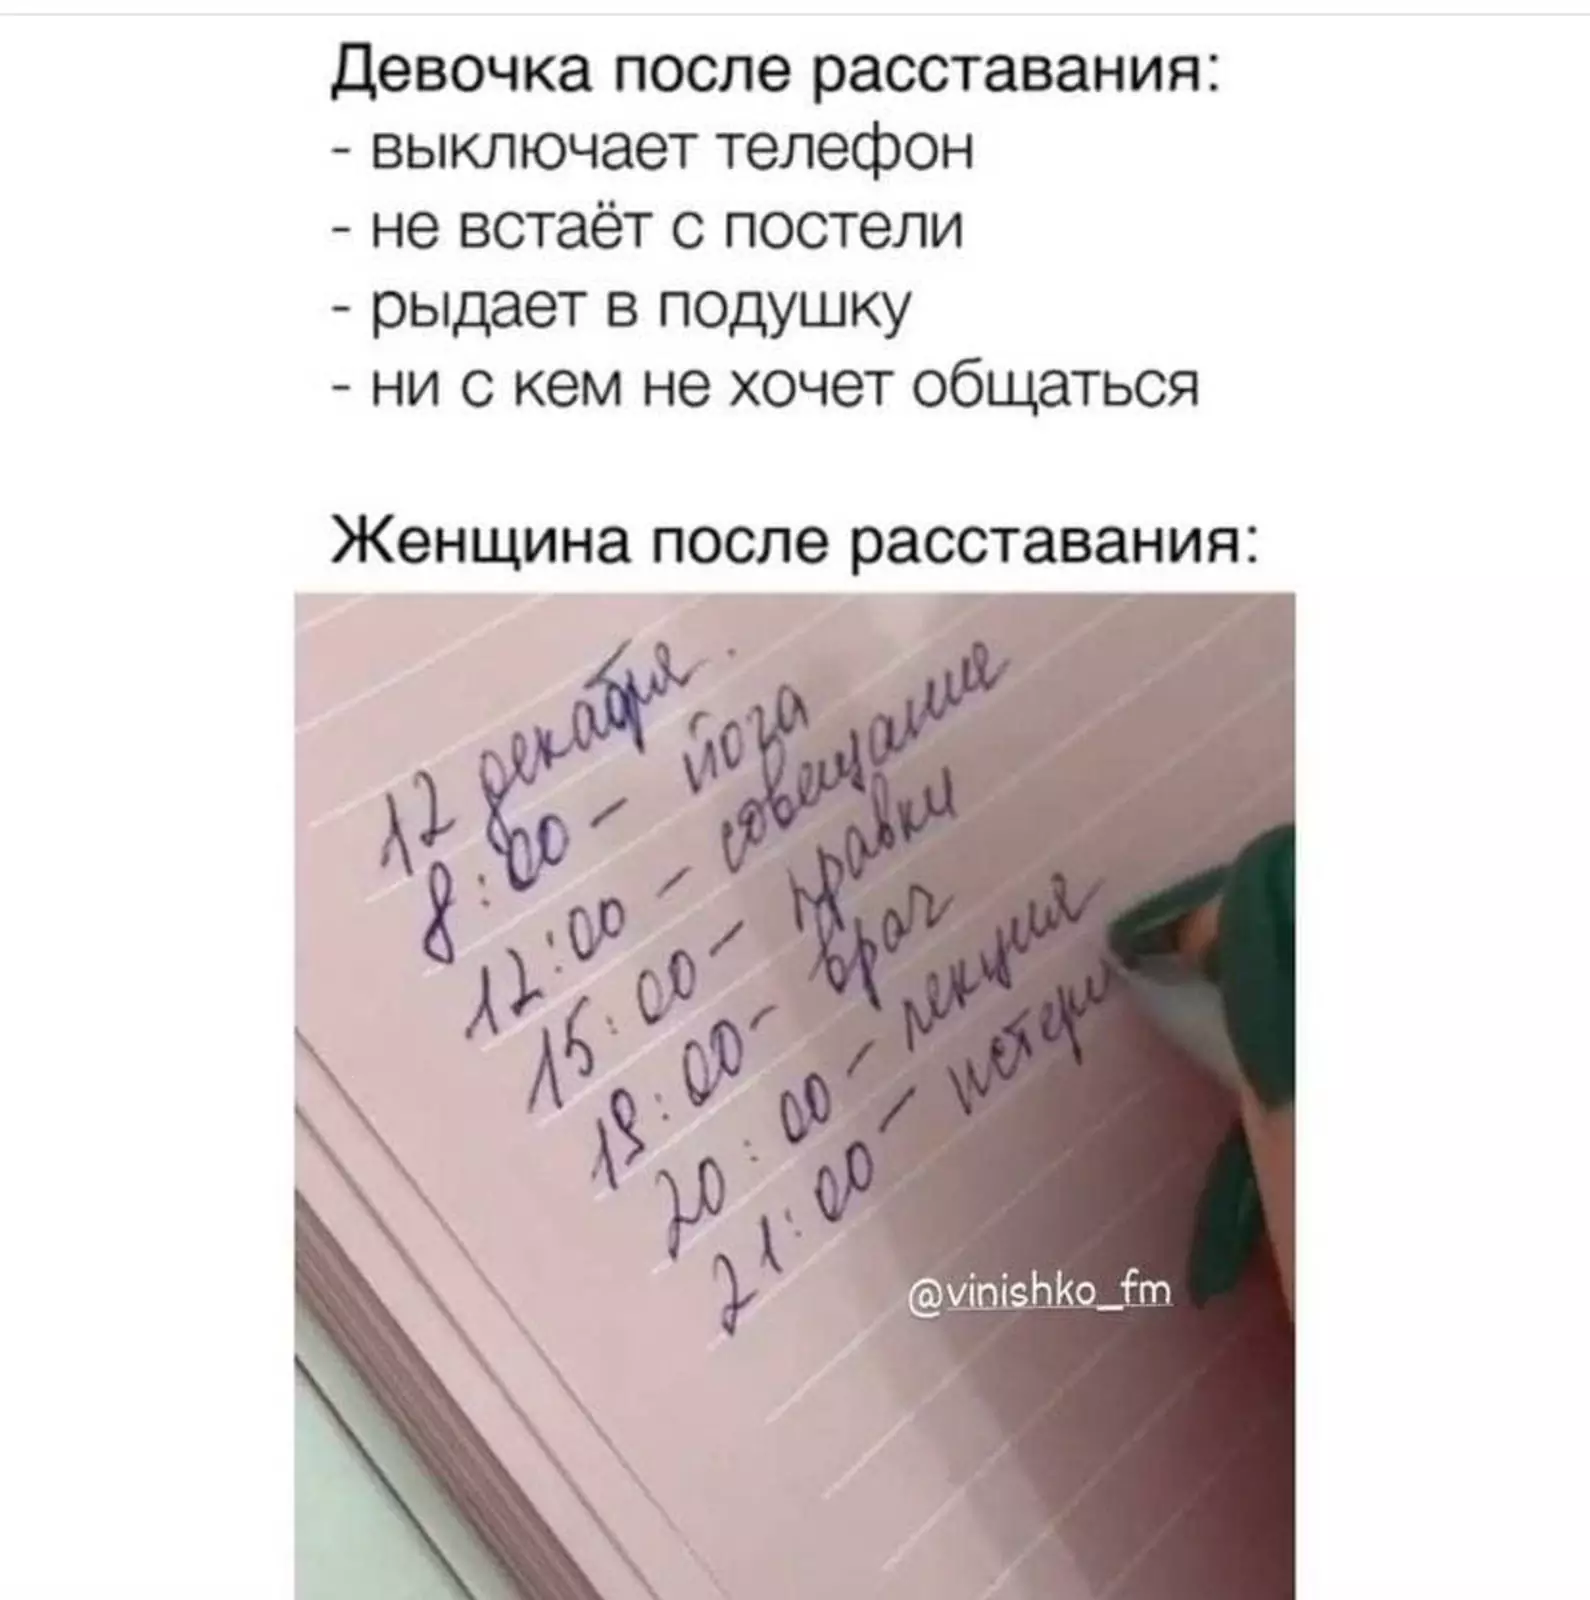 Девочка после расставания:
- выключает телефон
- не встаёт с постели
- рыдает в подушку
- ни с кем не хочет общаться
Женщина после расставания:
12 декабря.
8:00 - йога
12:00 - совещание
15:00 - правки
19:00 - врач
20:00 - лекция
21:00 - истери
@vinishko_fm